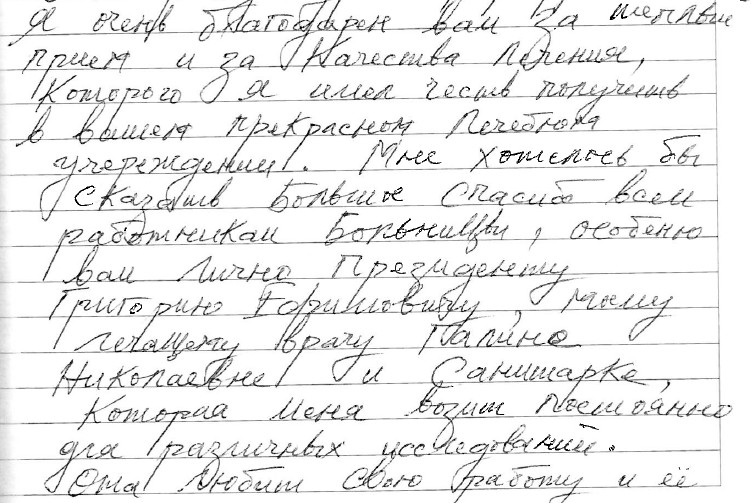 Я очень благодарен вам за теплые
прием и за качества лечения,
Которого я имел честь получить
в вашем прекрасном лечебном
учереждении. Мне хотелось бы
сказать Большое спасибо всем
работникам Больницы, особено
вам лично Президенту
Григорию Ефимовичу, моему
лечащему врачу Галине
Николаевне и Санитарке,
Которая меня возит постоянно
для различных исследований.
Она любит свою работу и её